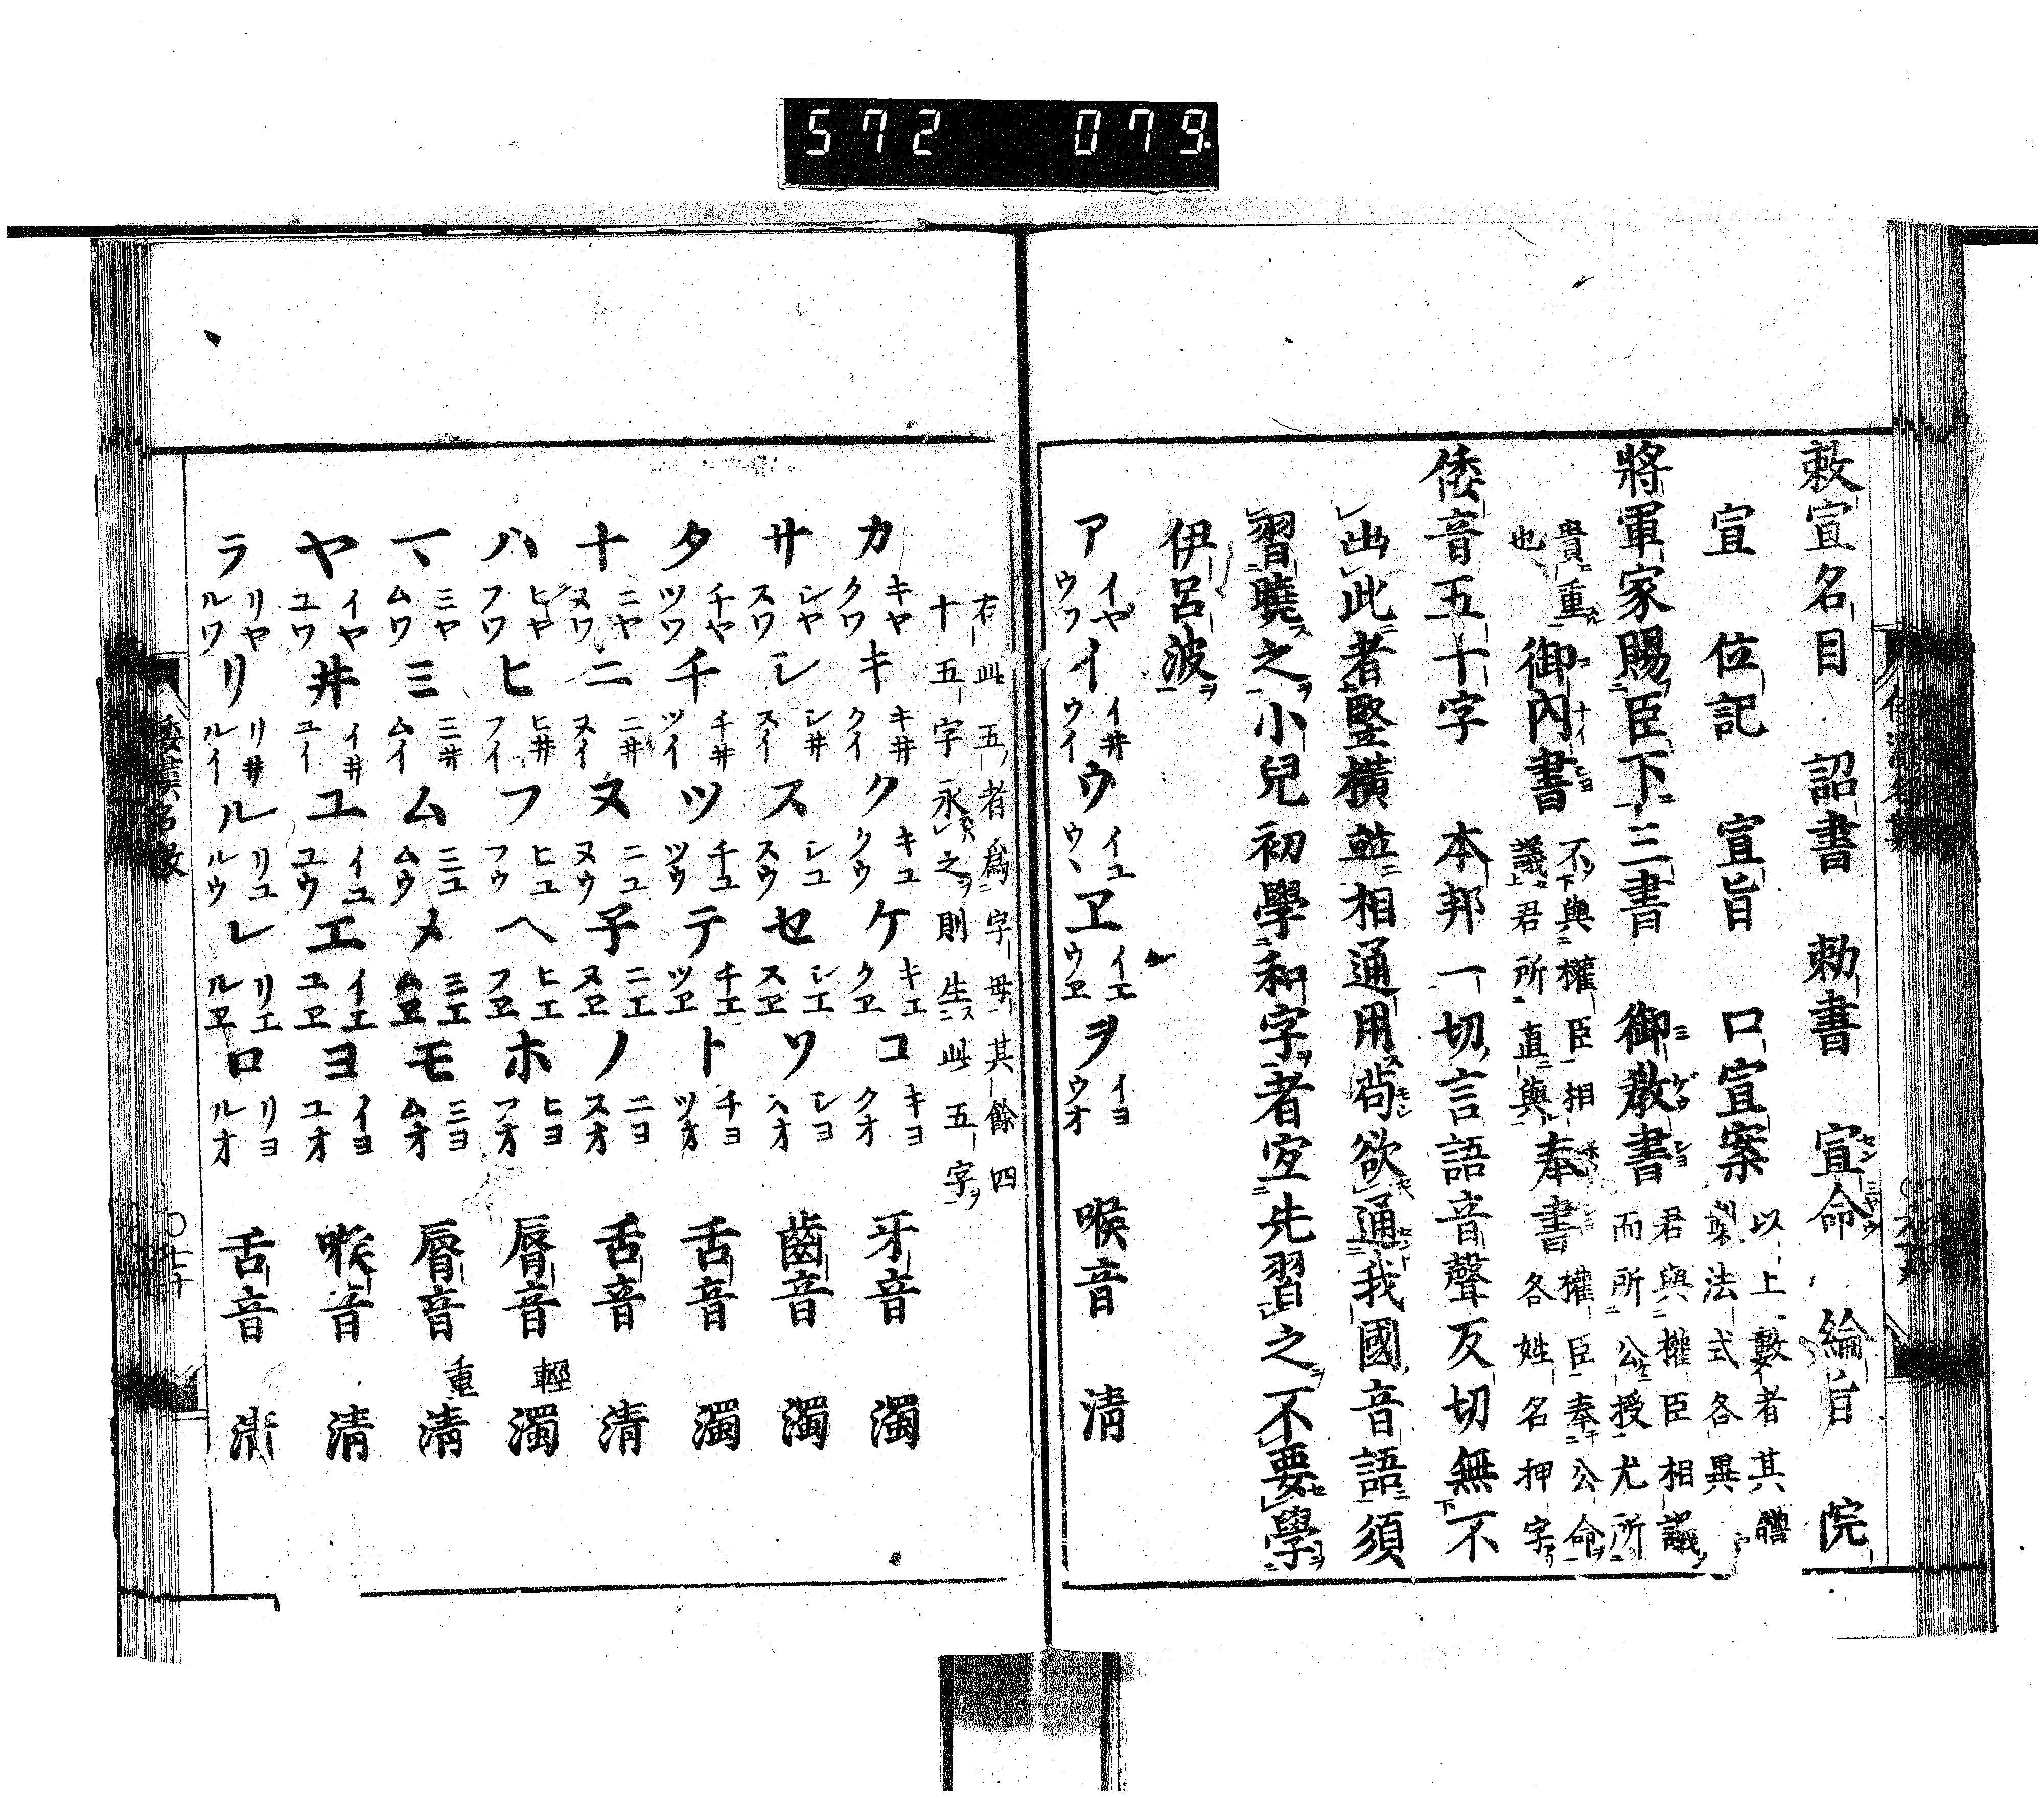 572 079
敕宣名目 詔書 勅書 宣命 綸旨 院
宣 位記 宣旨 口宣案 以上數者其體
製法式各異
將軍家賜臣下三書 御教書 君與權臣相議
而所公授尤所
貴重
也
御內書 不與權臣相
議君所直與
奉書 權臣奉公命
各姓名押字
倭音五十字 本邦一切言語音聲反切無不
出此者竪橫並相通用苟欲通我國音語須
習曉之小兒初學和字者宜先習之不要學
伊呂波
ア イヤ ウワ イ イ井 ウイ ウ イユ ウヽ ヱ イエ ウヱ ヲ イヨ ウオ 喉音 清
右此五者爲字母其餘四
十五字永之則生此五字
カ キヤ クワ キ キ井 クイ ク キユ クウ ケ キエ クヱ コ キヨ クオ 牙音 濁
サ シヤ スワ シ シ井 スイ ス シユ スウ セ シエ スヱ ソ シヨ スオ 齒音 濁
タ チヤ ツワ チ チ井 ツイ ツ チユ ツウ テ チエ ツヱ ト チヨ ツオ 舌音 濁
ナ ニヤ ヌワ ニ ニ井 ヌイ ヌ ニユ ヌウ 子 ニエ ヌヱ ノ ニヨ ヌオ 舌音 清
ハ ヒヤ フワ ヒ ヒ井 フイ フ ヒユ フウ ヘ ヒエ フヱ ホ ヒヨ フオ 脣音 輕 濁
マ ミヤ ムワ ミ ミ井 ムイ ム ミユ ムウ メ ミエ ムヱ モ ミヨ ムオ 脣音 重 清
ヤ イヤ ユワ 井 イ井 ユイ ユ イユ ユウ エ イエ ユヱ ヨ イヨ ユオ 喉音 清
ラ リヤ ルワ リ リ井 ルイ ル リユ ルウ レ リエ ルヱ ロ リヨ ルオ 舌音 清